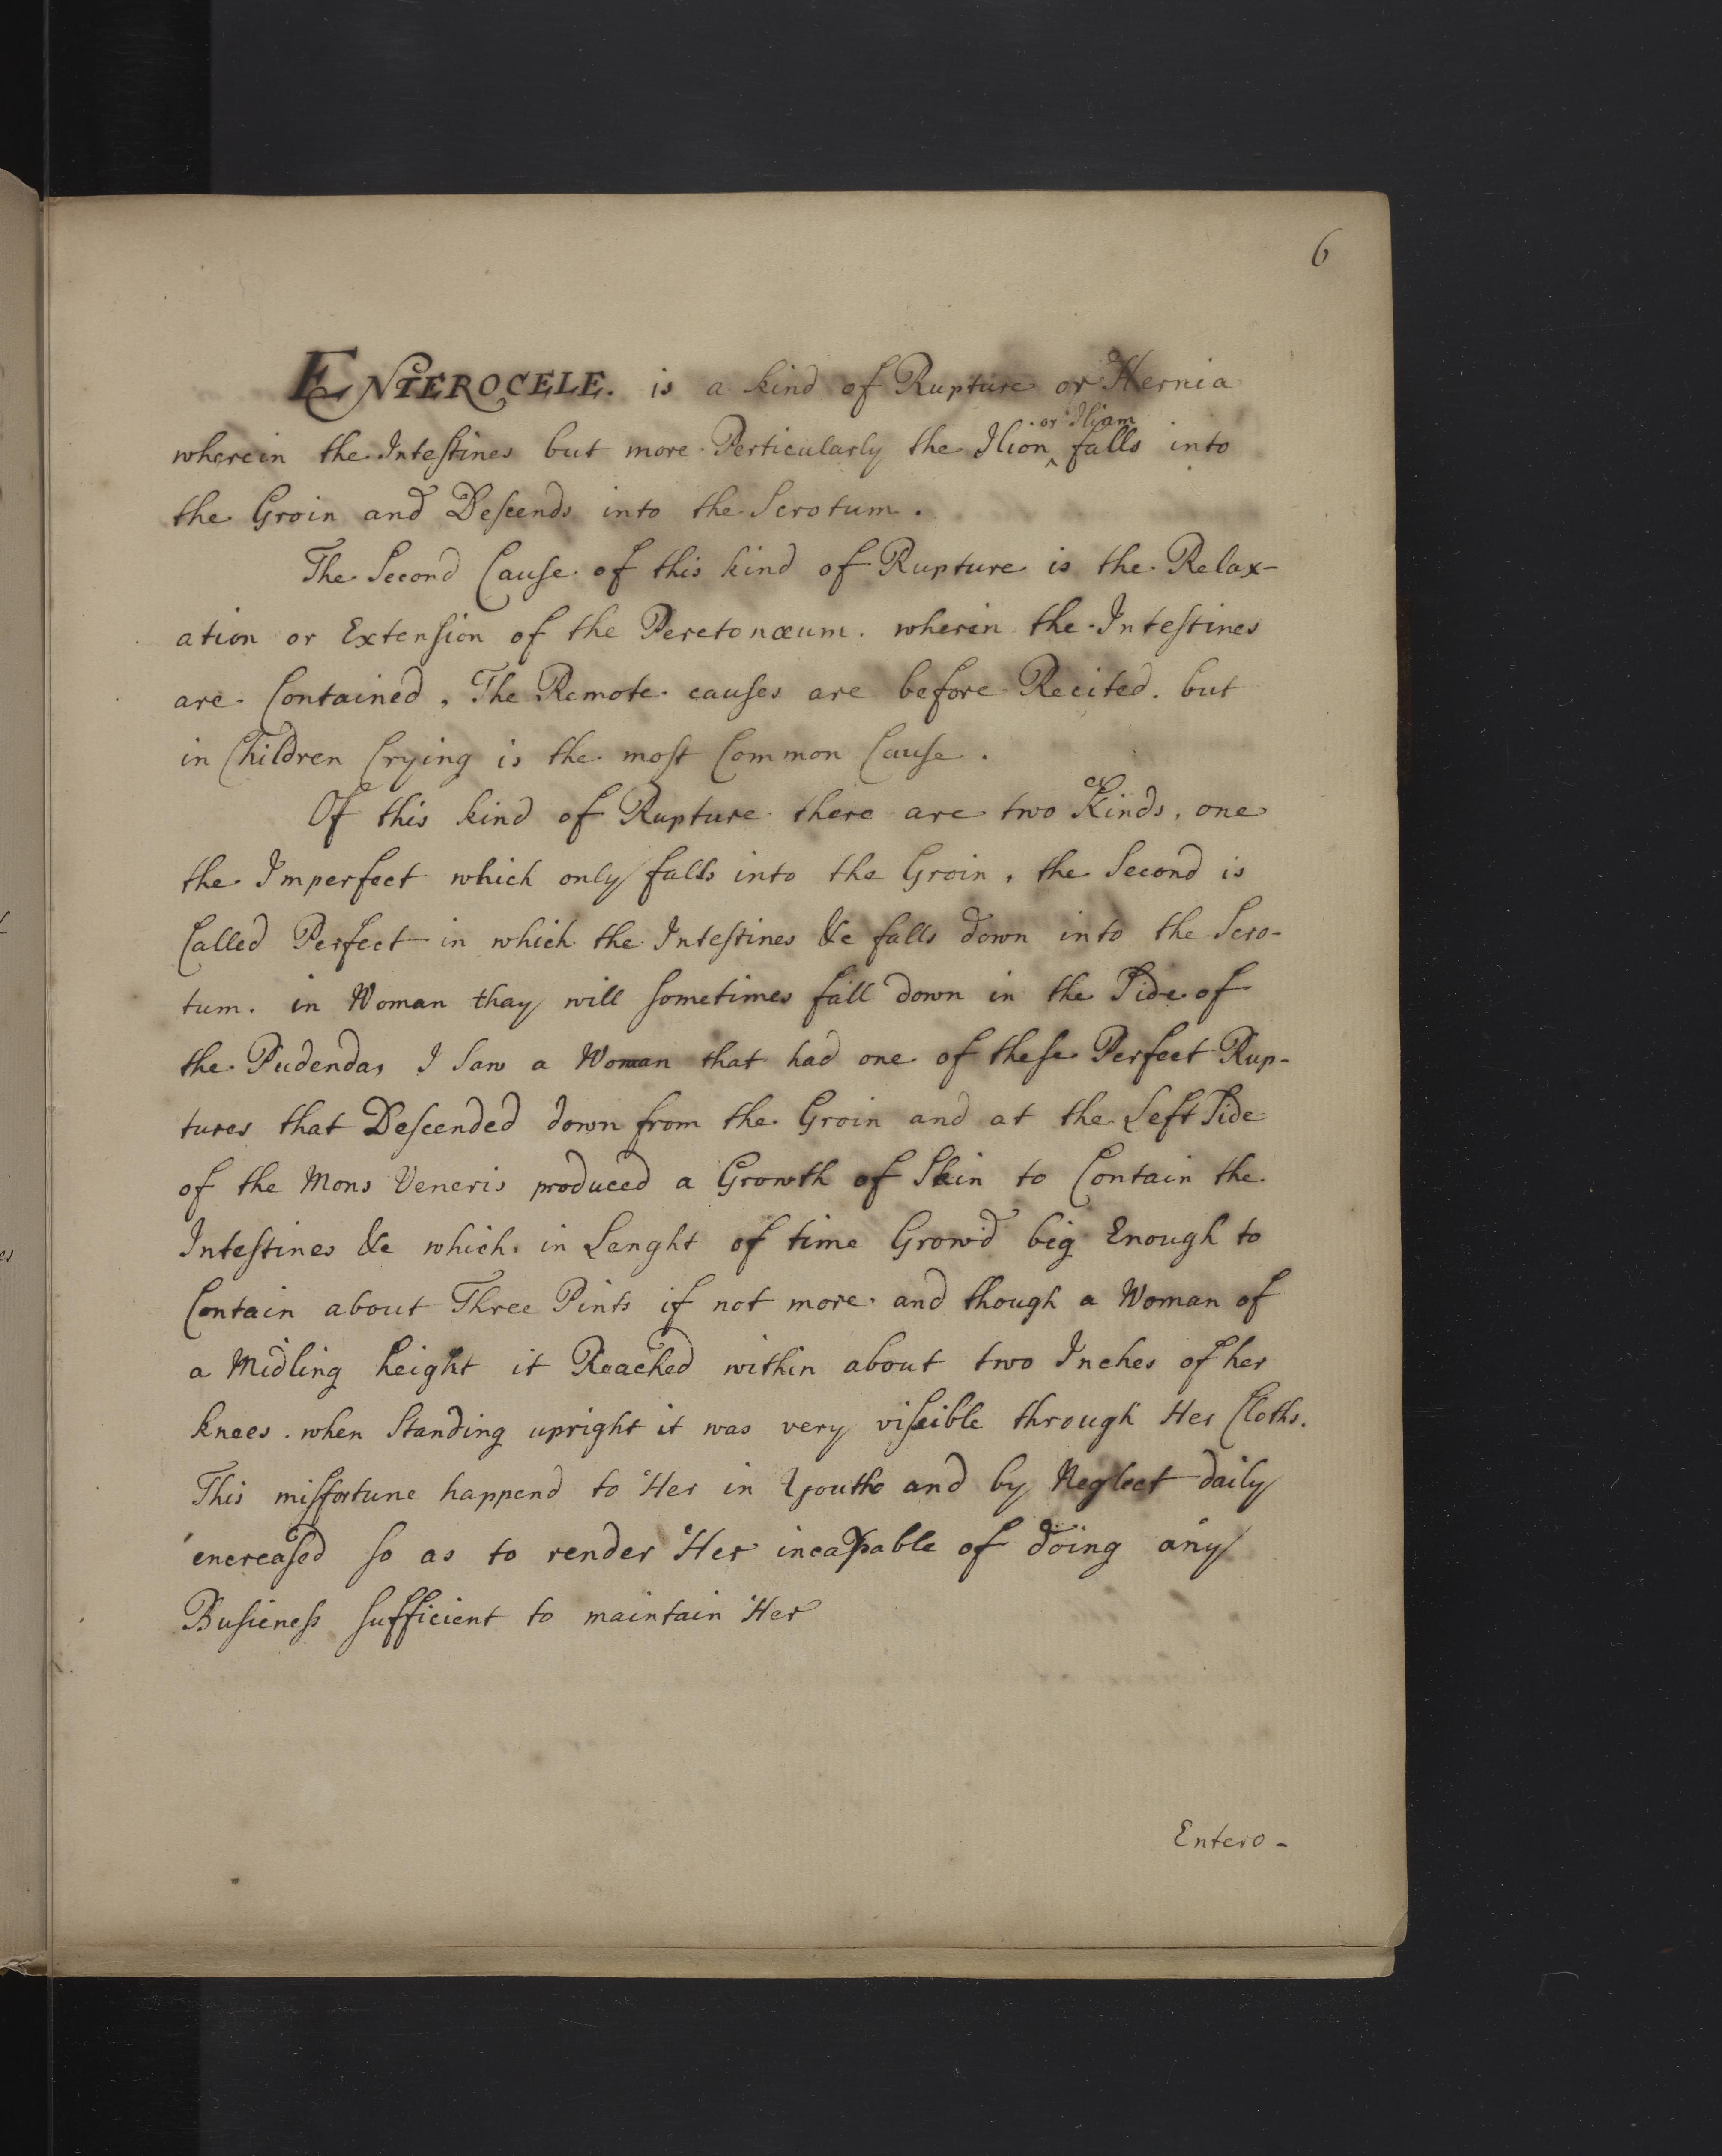 6
ENTEROCELE. is a kind of Rupture or Hernia
wherein the Inteſtines but more Perticularly the Ilion ^ or Iliam falls into
the Groin and Deſcends into the Scrotum.
The Second Cauſe of this kind of Rupture is the Relax-
ation or Extenſion of the Peretonæum. wherein the Inteſtines
are Contained, The Remote causes are before Recited. but
in Children Crying is the moſt Common Cauſe.
Of this kind of Rupture there are two Kinds, one
the Imperfect which only falls into the Groin, the Second is
Called Perfect in which the Inteſtines &c falls down into the Scro-
tum. in Woman thay will ſometimes fall down in the Side of
the Pudenda, I Saw a Woman that had one of theſe Perfect Rup-
tures that Deſcended down from the Groin and at the Left Side
of the Mons Veneris produced a Growth of Skin to Contain the
Inteſtines &c which in Lenght of time Grow'd big Enough to
Contain about Three Pints if not more. and though a Woman of
a Midling height it Reached within about two Inches of her
knees. when Standing upright it was very viſeible through Her Cloths.
This miſfortune happend to Her in Youth and by Neglect daily
encreaſed ſo as to render Her incapable of doing any
Buſieneſs ſufficient to maintain Her
Entero-